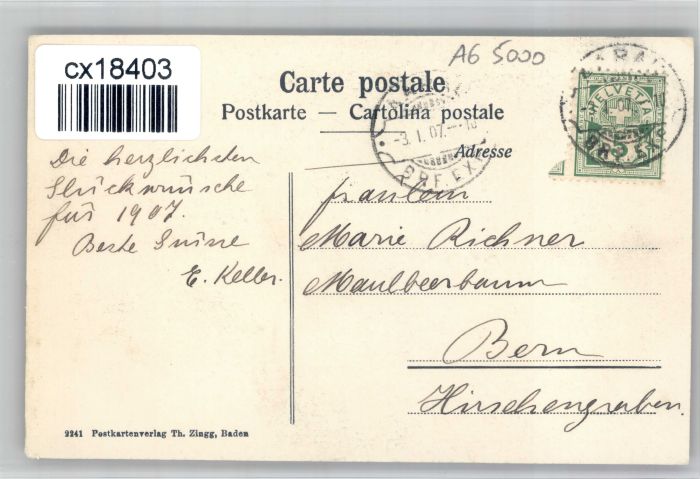 cx18403
AG 5000
Carte postale
Postkarte — Cartolina postale
Adresse
AARAU
BRF. EXP.
HELVETIA
5
-3.I.07.-10
BRF. EXP.
Die herzlichsten
Glückwünsche
für 1907.
Beste Grüsse
E. Keller.
Fräulein
Marie Richner
Maulbeerbaum
Bern
Hirschengraben.
2241 Postkartenverlag Th. Zingg, Baden